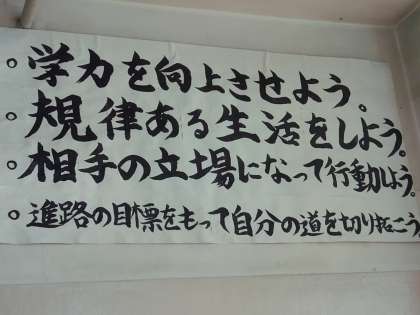 ○学力を向上させよう。
○規律ある生活をしよう。
○相手の立場になって行動しよう。
○進路の目標をもって自分の道を切り拓こう。